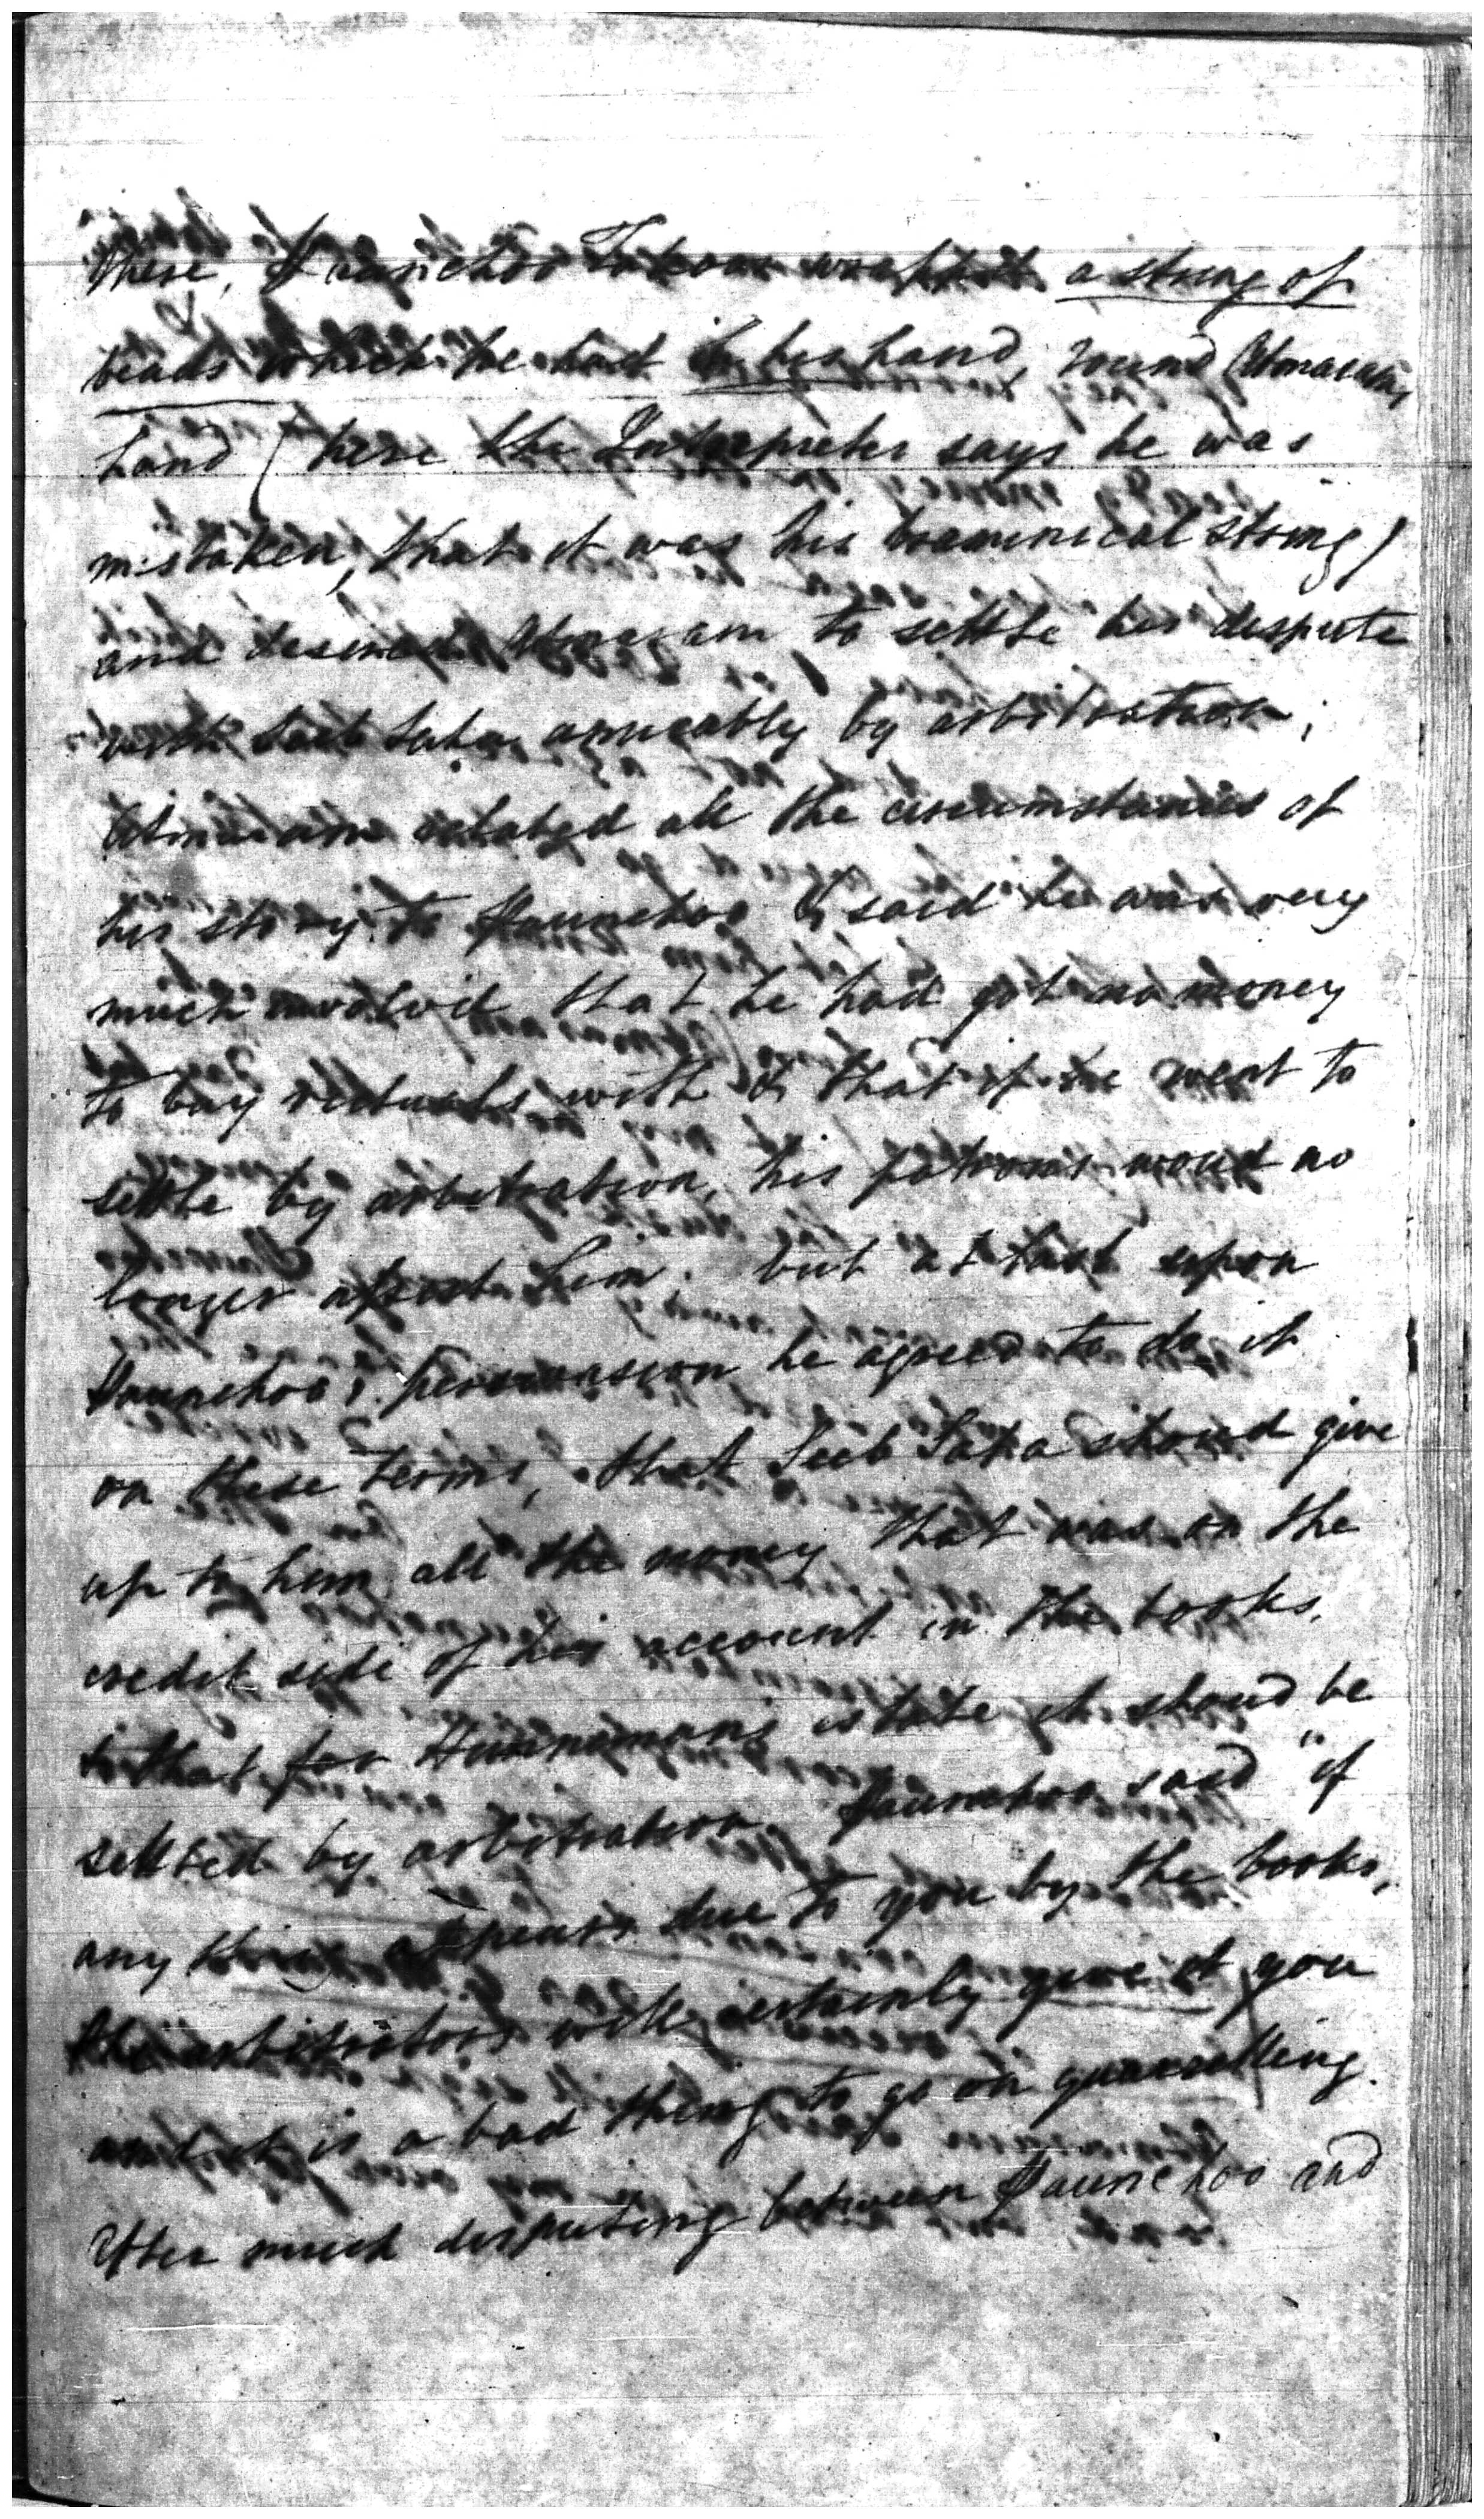 there, Paunchoo Takoor wrapped a string of
beads which he had in his hand, round Atmaram's
hand (here the Interpreter says he was
mistaken, that it was his braminical string)
and desired Atmaram to settle his dispute
with amicably by arbitration;
Atmaram related all the circumstances of
his story to Paunchoo & said he was very
much involved that he had got no money
to buy victuals with & that if he went to
settle by arbitration, his patrons woud no
longer assist him. but at last upon
Paunchoo's perswasion he agreed to do it
on these terms, that shoud give
up to him all the money that was on the
credit side of his account in the books,
& that for estate it shoud be
settled by arbitration. Paunchoo said "if
any thing appears due to you by the books,
the arbitrators will certainly give it you
and it is a bad thing to go on quarrelling.
After much disputing between Paunchoo and